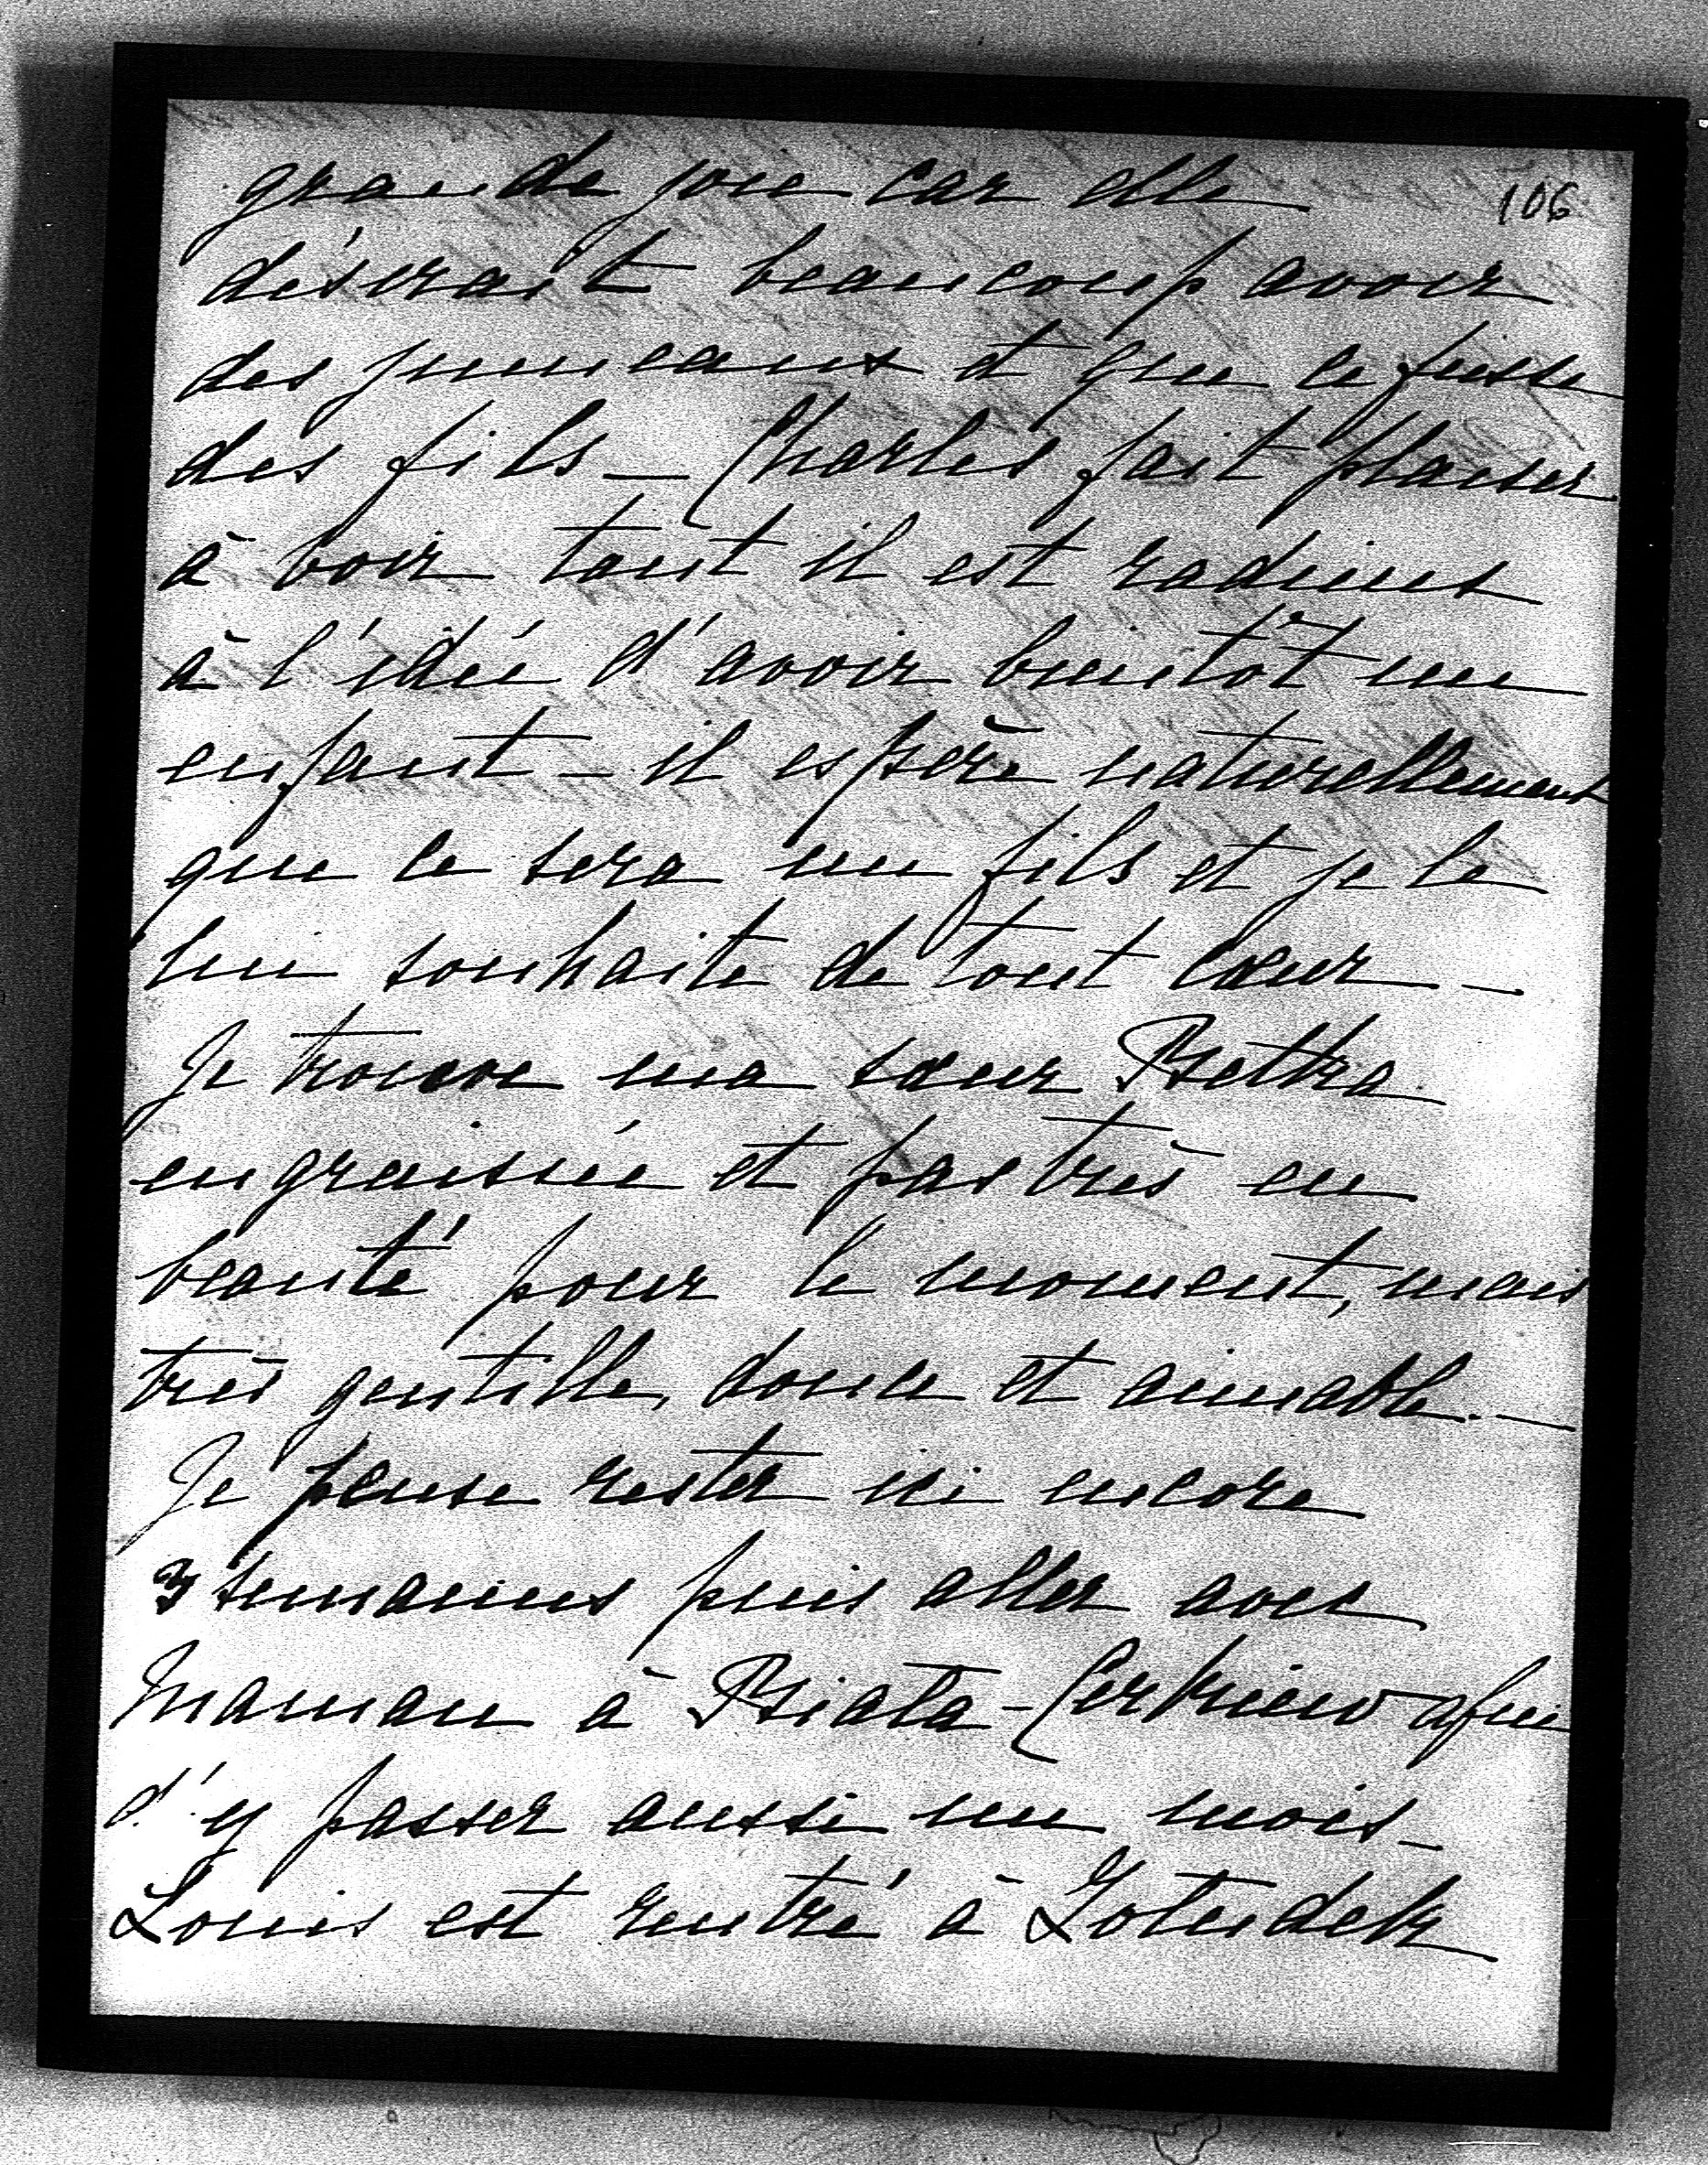 106
grande joie car elle
désirait beaucoup avoir
des jumeaux et que ce fusse
des fils — Charles fait plaisir
à voir tant il est radieux
à l'idée d'avoir bientôt un
enfant — il espère naturellement
que ce sera un fils et je le
lui souhaite de tout cœur —
Je trouve ma sœur Betka
engraissée et pas très en
beauté pour le moment, mais
très gentille, douce et aimable. —
Je pense rester ici encore
3 semaines puis aller avec
Maman à Biała-Cerkiew afin
d'y passer aussi un mois —
Louis est rentré à